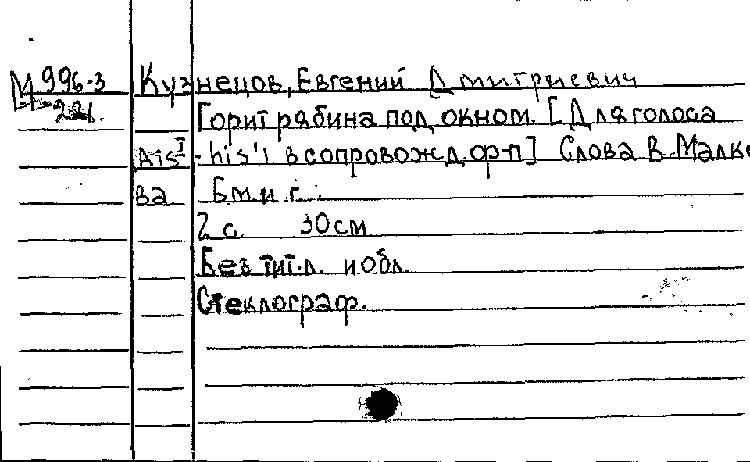 М 996-3 Кузнецов, Евгений Дмитриевич
221. Горит рябина под окном. [Для голоса
Ais I - his' I в сопровожд. ф-п] Слова В Малко
ва Б м и г.
2 с. 30 см
Без тит. л. и обл.
Стеклограф.